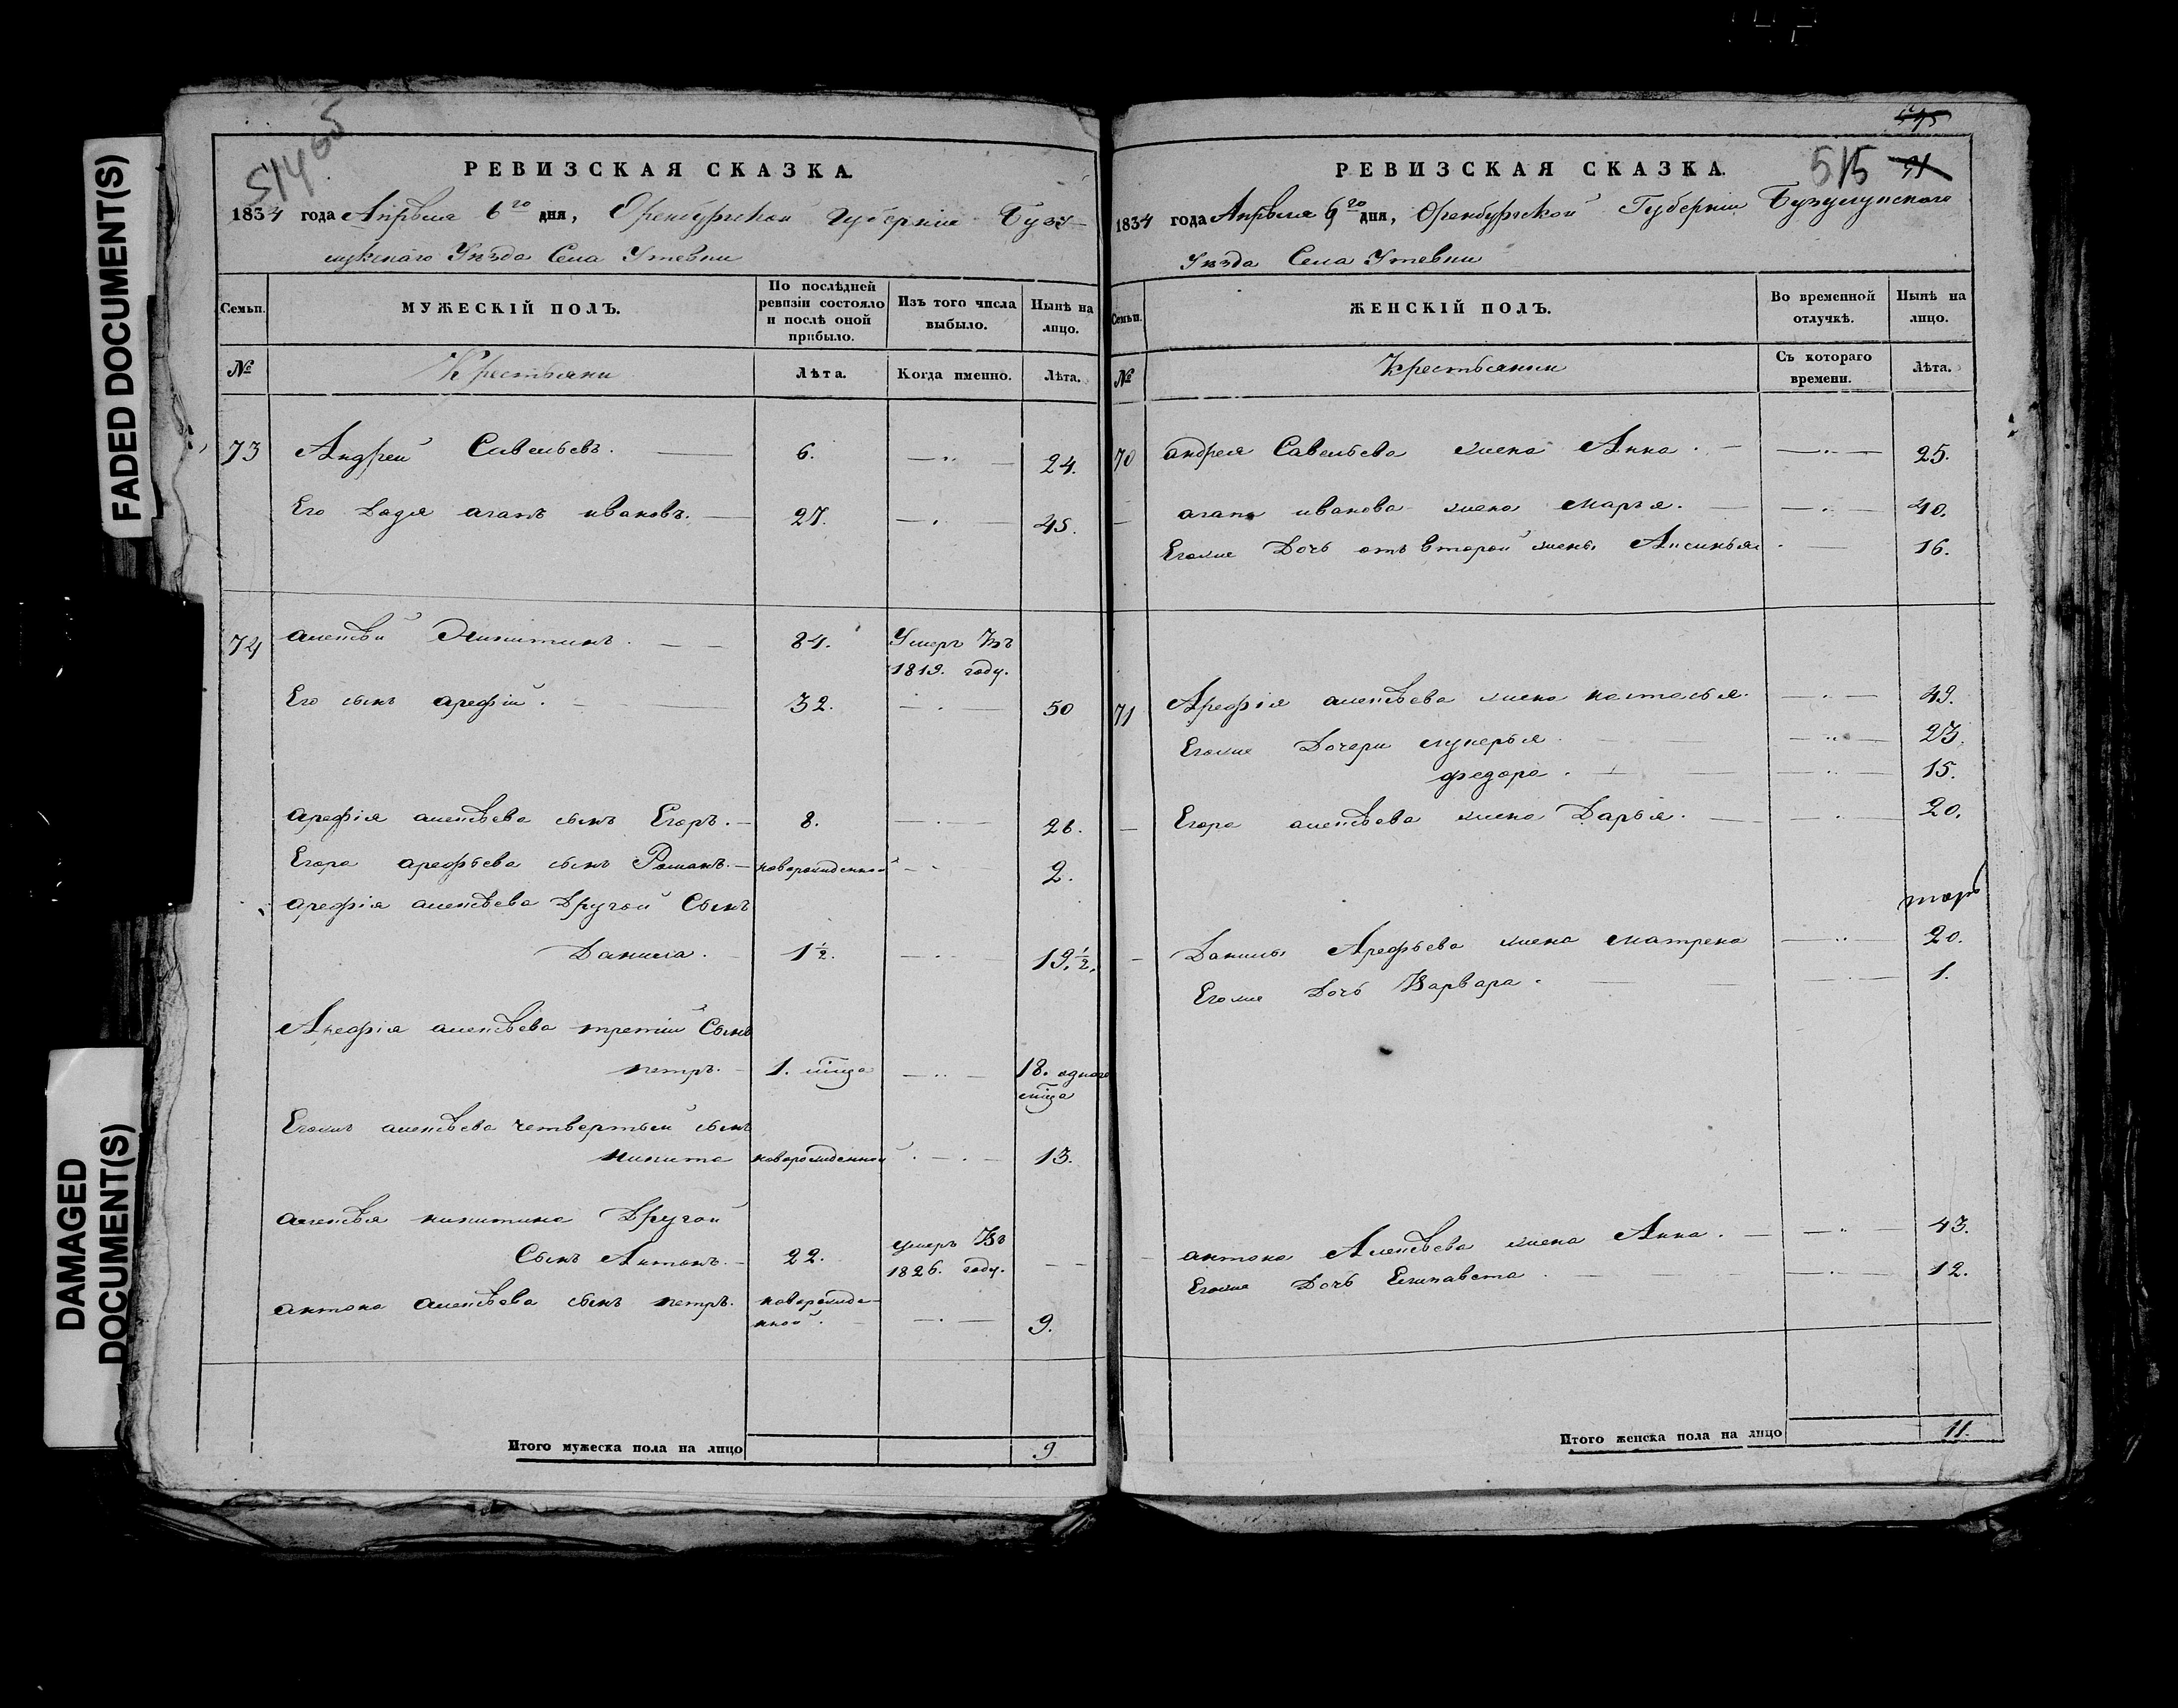 FADED DOCUMENT(S)
DAMAGED
DOCUMENT(S)
514
РЕВИЗСКАЯ СКАЗКА.
1834 года Апрѣля 6го дня, Оренбургской Губерніи Бузу-
лукскаго Уѣзда Села Утевки
Семьи. МУЖЕСКІЙ ПОЛЪ. По послѣдней ревизіи состояло и послѣ оной прибыло. Изъ того числа выбыло. Нынѣ на лицо.
№ Крестьяни Лѣта. Когда именно. Лѣта.
73 Андрей Савельевъ. 6. 24.
Его Дядя агапъ ивановъ. 27. 45.
74 алексѣй Никитинъ. 84. Умеръ Въ
1819. году.
Его сынъ арефій. 32. 50
арефія алексѣева сынъ Егоръ. 8. 26.
Егора арефьева сынъ Романъ. новорожденной 2.
арефія алексѣева Другой Сынъ
Данила. 1½. 19½.
Арефія алексѣева третій Сынъ
петръ. 1. мца 18. одного
мца
Егожъ алексѣева четвертый сынъ
никита новорожденной 13.
алексѣя никитина Другой
Сынъ Антонъ. 22. умеръ Въ
1826. году.
антона алексѣева сынъ петръ. новорожде-
нной. 9.
Итого мужеска пола на лицо 9
515
РЕВИЗСКАЯ СКАЗКА.
1834 года Апрѣля 6го дня, Оренбургской Губерніи Бузулукскаго
Уѣзда Села Утевки
Семьи. ЖЕНСКІЙ ПОЛЪ. Во временной отлучкѣ. Нынѣ на лицо.
№ Крестьянки Съ котораго времени. Лѣта.
70 андрея Савельева жена Анна. 25.
агапа иванова жена марья. 40.
Егоже Дочь отъ второй жены Аксинья 16.
71 Арефія алексѣева жена наталья. 49.
Егоже Дочери лукерья 23.
федора. 15.
Егора алексѣева жена Дарья. 20.
Данилы Арефьева жена матрена 20.
Егоже Дочь Варвара. 1.
антона Алексѣева жена Анна. 43.
Егоже Дочь Елизавета. 12.
Итого женска пола на лицо 11.